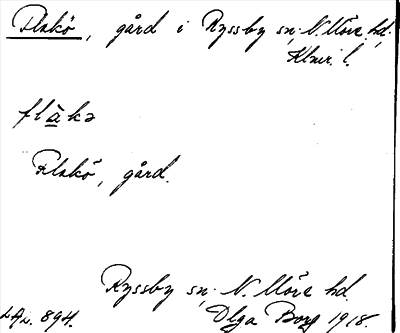 Flakö, gård i Ryssby sn. N. Möre hd.
Klmr. l.
flàkə
Flakö, gård.
Ryssby sn. N. Möre hd.
LAL. 894.
Olga Borg 1918.